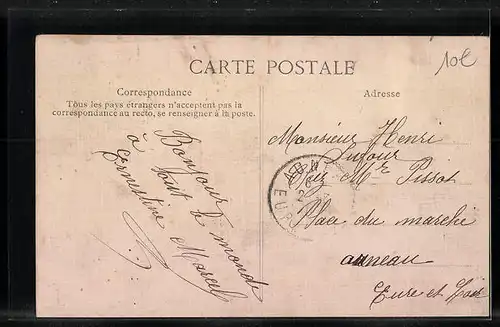 10E
CARTE POSTALE
Correspondance
Tous les pays étrangers n'acceptent pas la
correspondance au recto, se renseigner à la poste.
Adresse
Bonjour
à tout le monde
Ernestine Marcel
Monsieur Henri
Chez Mr Pissot
Place du marché
auneau
Eure et Loir
AUN
EUR